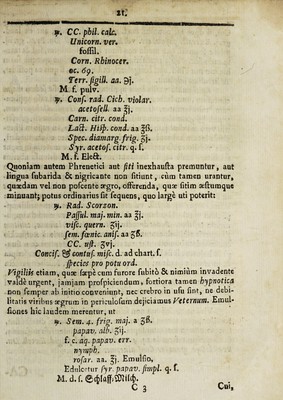 21.
℞. CC. phil. calc.
Unicorn. ver.
fossil.
Corn. Rhinocer.
oc. 69.
Terr. sigill. aa. ℈j.
M. f. pulv.
℞. Cons. rad. Cich. violar.
acetosell. aa ℥j.
Carn. citr. cond.
Lact. Hisp. cond. aa ℥ß.
Spec. diamarg. frig. ʒj.
Syr. acetos. citr. q. s.
M. f. Elect.
Quoniam autem Phrenetici aut siti inexhausta premuntur, aut
lingua subarida & nigricante non sitiunt, cùm tamen urantur,
quædam vel non poscente ægro, offerenda, quæ sitim æstumque
minuant; potus ordinarius sit sequens, quo largè uti poterit:
℞. Rad. Scorzon.
Passul. maj. min. aa ℥j.
visc. quern. ʒij.
sem. fœnic. anis. aa ʒß.
CC. ust. ʒvj.
Concis. & contus. misc. d. ad chart. s.
species pro potu ord.
Vigiliis etiam, quæ sæpè cum furore subitò & nimiùm invadente
valdè urgent, jamjam prospiciendum, fortiora tamen hypnotica
non semper ab initio conveniunt, nec crebro in usu sint, ne debi-
litatis viribus ægrum in periculosum dejiciamus Veternum. Emul-
siones hic laudem merentur, ut
℞. Sem. 4. frig. maj. a ʒß.
papav. alb. ʒij.
f. c. aq. papav. err.
nymph.
rosar. aa. ℥j. Emulsio,
Edulcetur syr. papav. simpl. q. s.
M. d. s. Schlaff-Milch.
C 3 Cui,